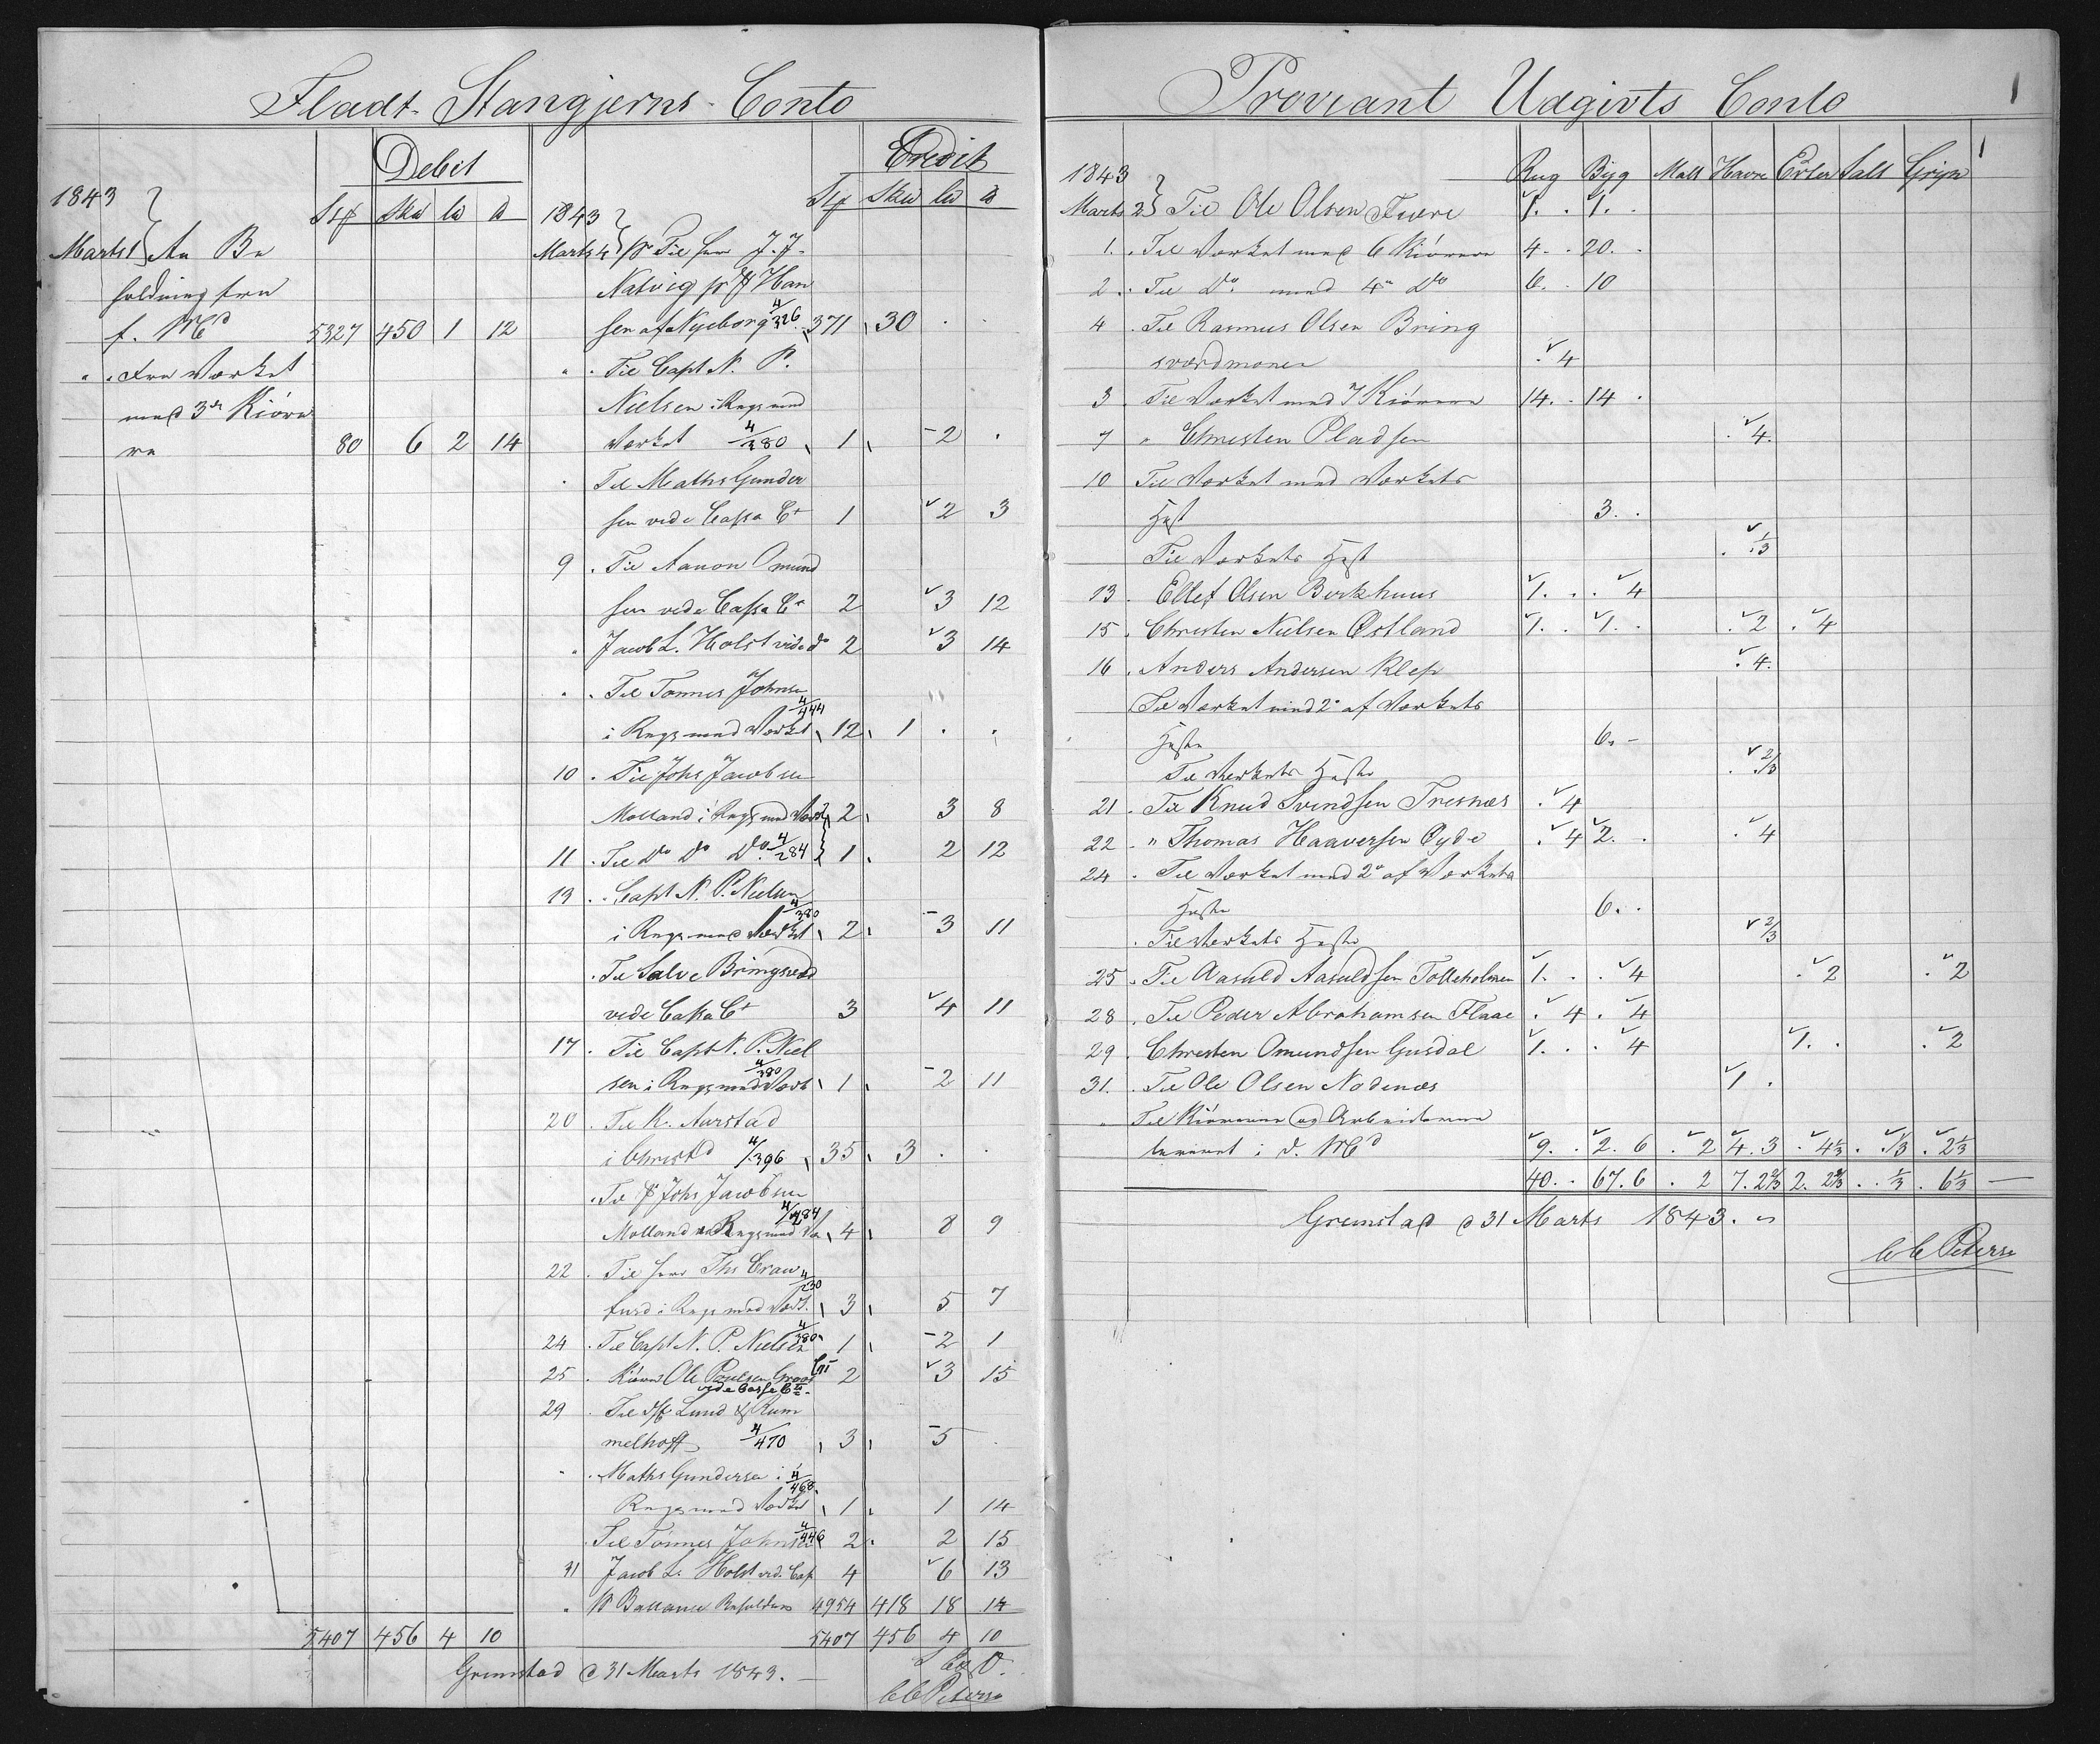 Fladt-Stangjerns-Conto
Debet
Credit
1843
Marts 1 An Be
holdning fra
f. Md 5327 450 1 12
" " Fra Værket
med 3de Kiöre
re 80 6 2 14
5407 456 4 10
1843
Marts 4 pr Til Herr J. J.
Natvig pr Han
sen af Nyeborg 4/326 371 30 . .
" . Til Capt N. P.
Nielsen i Regng med
Værket 4/380 1 2 .
. Til Maths Gunder
sen vide Cassa Ct 1 2 3
9 . Til Aanon Omund
sen vide Cassa Ct 2 3 12
" Jacob L. Holst vide do 2 3 14
" . Til Tønnes Johnse
i Regng med Værket 4/444 12 1 . .
10 . Til Johs Jacobsen
Molland i Regng med Værk 2 3 8
11 . Til Do Do Do 4/284 1 2 12
13 . Capt N. P. Nielsen
i Regng med Værket 4/380 2 3 11
. Til Salve Bringsværd
vide Cassa Ct 3 4 11
17 . Til Capt N. P. Niel
sen i Regng med Værk 4/380 1 2 11
20 . Til K. Aarstad
i Christsd 4/396 35 3 . .
. Til Johs Jacobsen
Molland i Regng med Væ 4/284 4 8 9
22 . Til Herr Ths Craw
furd i Regng med Værk. 4/230 3 5 7
24 . Til Capt N. P. Nielsen 4/380 1 2 1
25 . Kiörer Ole Poulsen Groos 2 3 15
vide Cassa Ct
29 . Til Lund & Rum
melhoff 4/470 3 5 .
" . Maths Gundersen i 4/468
Regng med Værket 1 1 14
. Til Tønnes Johnsen 4/446 2 2 15
31 Jacob L. Holst vid. Cas 4 6 13
" pr Ballance Beholdning 4954 418 18 14
5407 456 4 10
Grimstad d 31 Marts 1843.
C C Peterse
Proviant Udgivts Conto
1
1843 Rug Byg Malt Havre Erter Salt Gryn
Marts 2 Til Ole Olsen Fuere 1. . 1. .
1. . Til Værket med 6 Kiörere 4 . . 20 .
2 . Til Do med 4 Do 6. . 10
4 . Til Rasmus Olsen Bring
sværdmoner . 4
3 . Til Værket med 7 Kiörere 14. . 14 .
7 " Christen Pladsen . 4.
10 Til Værket med Værkets
Hest 3. .
Til Værkets Hest . 1/3
13 . Ellef Olsen Birkhuus 1. . . 4
15 . Christen Nielsen Østland 1. . 1. . . 2 . 4
16 . Anders Andersen Klep . 4.
Til Værket med 2 af Værkets
Heste 6. -
Til Værkets Heste . 2/3
21 . Til Knud Svendsen Tresnæs . 4
22 . " Thomas Haaversen Øyde . 4 2. . . 4
24 . Til Værket med 2 af Værkets
Heste 6. .
. Til Værkets Heste 2/3
25 . Til Aasuld Aasuldsen Tolleholmen 1. . . 4 . 2 . 2
28 . Til Peder Abrahamsen Flaae . 4 . 4
29 . Christen Omundsen Gusdal 1. . . 4 1. . . 2
31. . Til Ole Olsen Nodenæs 1 .
" Til Kiörerne og Arbeiderne
leveret i d. Md 9. . 2. 6 . 2 4. 3 . 4 1/3 . . 1/3 . 2 1/3
40. . 67. 6 . 2 7. 2 2/3 2. 2 2/3 . . 1/3 . 6 1/3
Grimstad d 31 Marts 1843.
C C Peterse